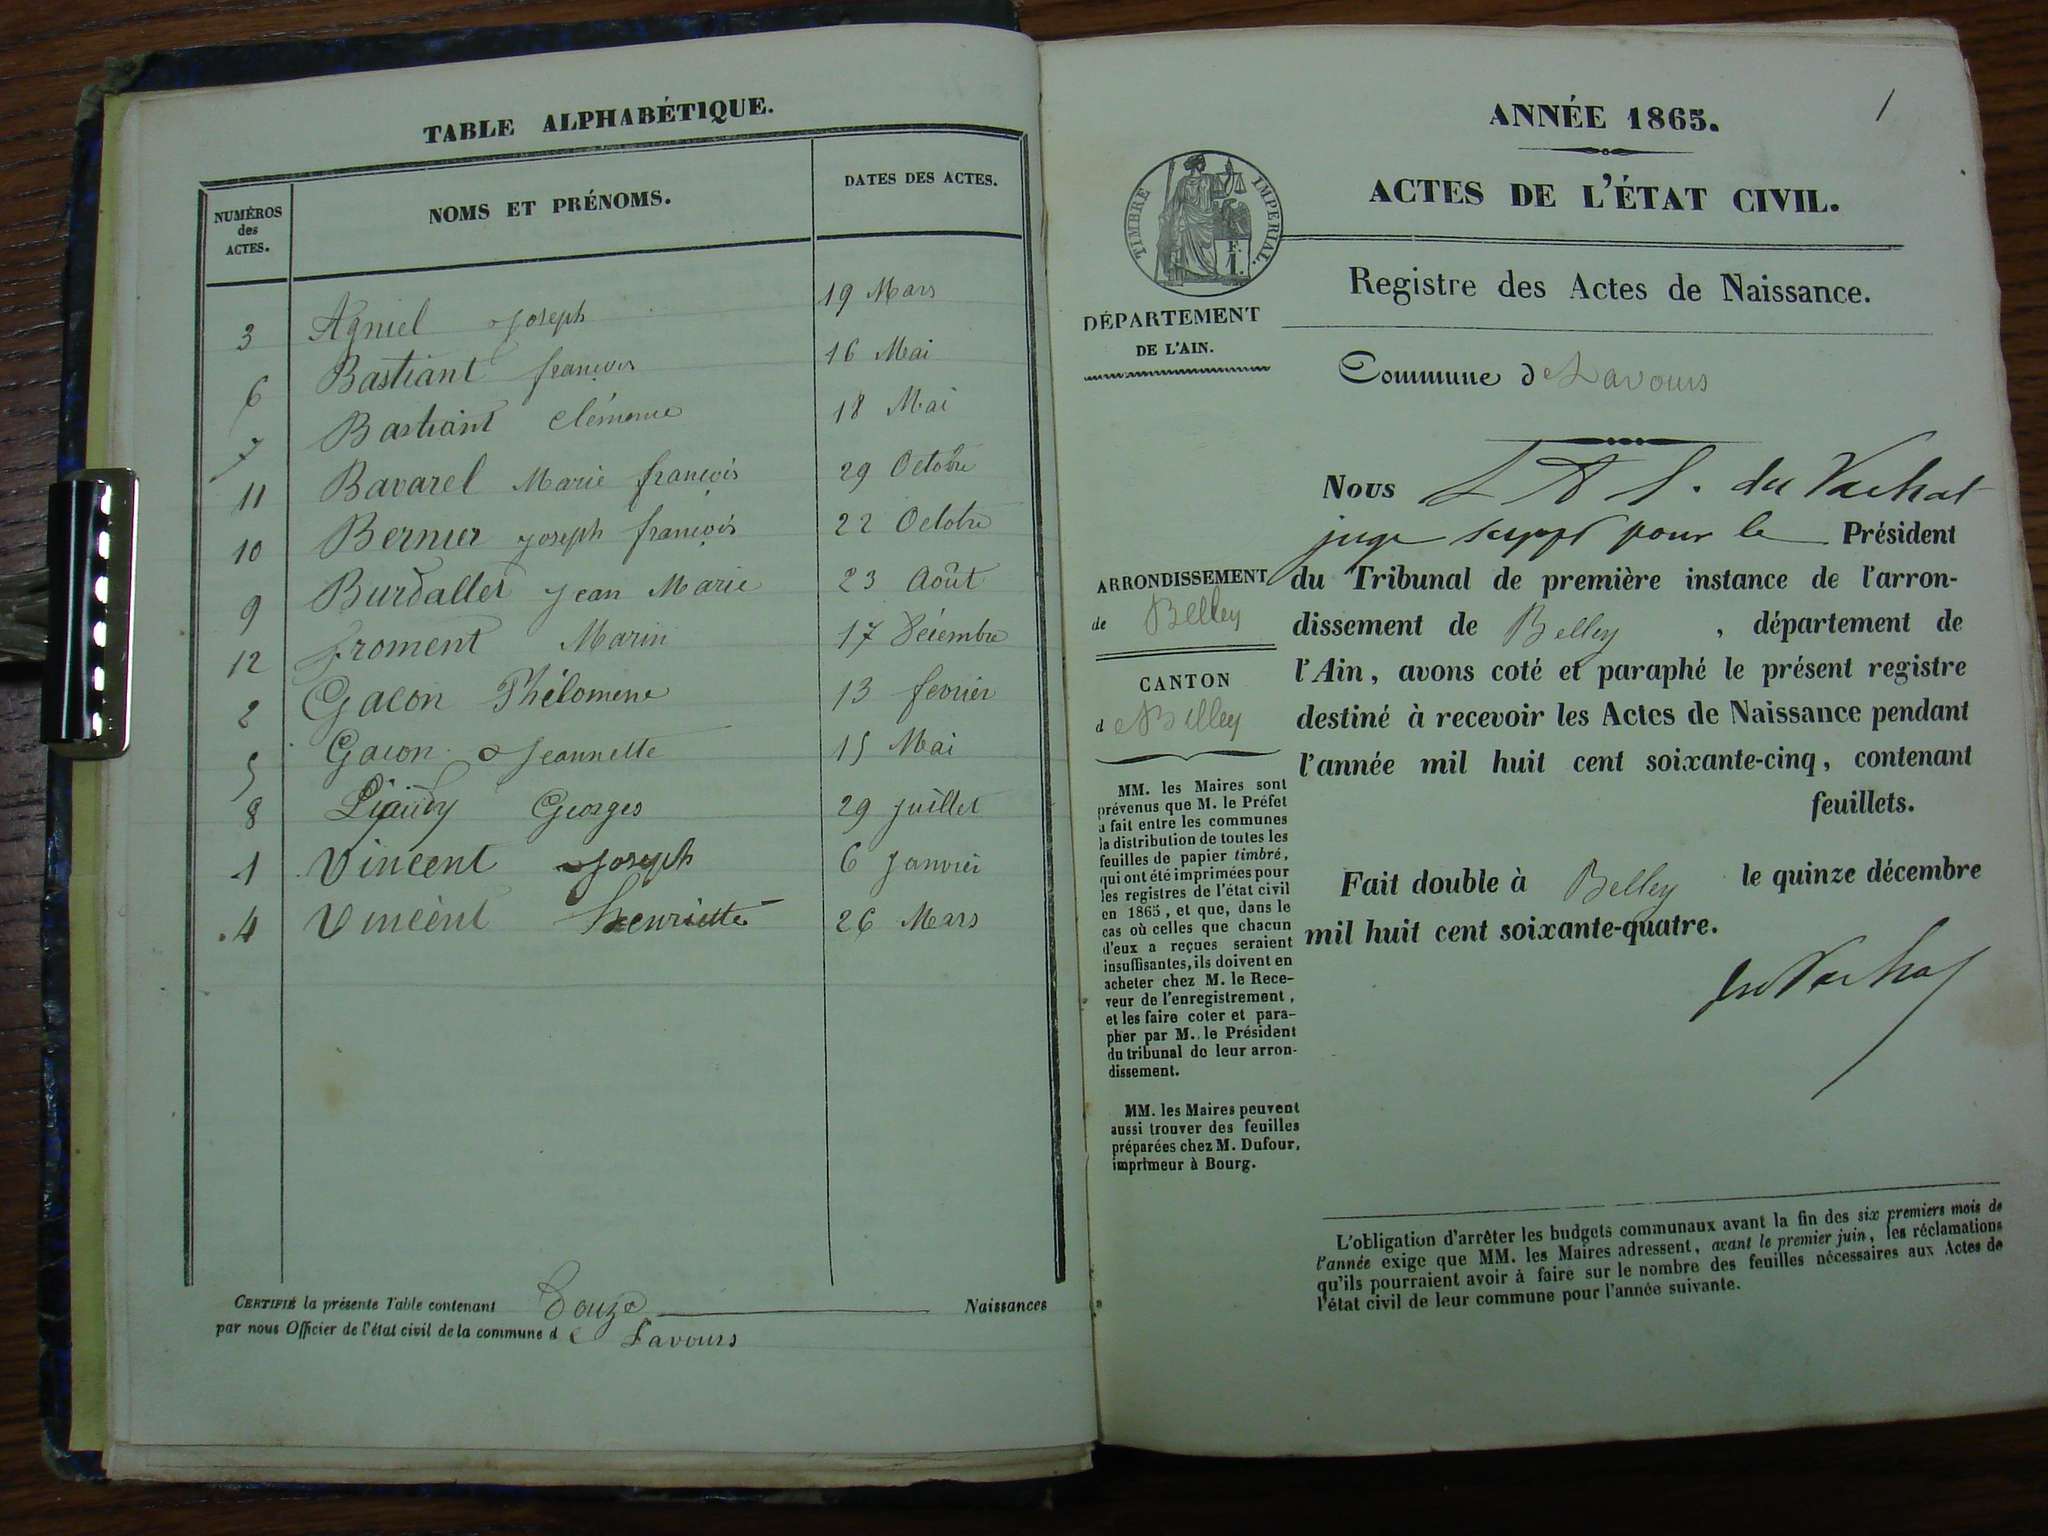 TABLE ALPHABÉTIQUE.
NUMÉROS des ACTES. NOMS ET PRÉNOMS. DATES DES ACTES.
3 Agniel Joseph 19 Mars
6 Bastiant françois 16 Mai
7 Bastiant Clémence 18 Mai
11 Bavarel Marie françois 29 Octobre
10 Bernier Joseph françois 22 Octobre
9 Burdallet Jean Marie 23 Août
12 froment Marin 17 Décembre
2 Gacon Phélomene 13 fevrier
5 Gacon Jeannette 15 Mai
8 Ligeudy Georges 29 juillet
1 Vincent Joseph 6 Janvier
4 Vincent henriette 26 Mars
CERTIFIÉ la présente Table contenant Douze Naissances
par nous Officier de l'état civil de la commune de Lavours
1
ANNÉE 1865.
ACTES DE L'ÉTAT CIVIL.
TIMBRE IMPÉRIAL.
DÉPARTEMENT
DE L'AIN.
Registre des Actes de Naissance.
Commune de Lavours
Nous du Vachat
juge suppt pour le Président
du Tribunal de première instance de l'arron-
dissement de Belley, département de
l'Ain, avons coté et paraphé le présent registre
destiné à recevoir les Actes de Naissance pendant
l'année mil huit cent soixante-cinq, contenant
feuillets.
Fait double à Belley le quinze décembre
mil huit cent soixante-quatre.
du Vachat
ARRONDISSEMENT
de Belley
CANTON
de Belley
MM. les Maires sont
prévenus que M. le Préfet
a fait entre les communes
la distribution de toutes les
feuilles de papier timbré,
qui ont été imprimées pour
les registres de l'état civil
en 1865, et que, dans le
cas où celles que chacun
d'eux a reçues seraient
insuffisantes, ils doivent en
acheter chez M. le Rece-
veur de l'enregistrement,
et les faire coter et para-
pher par M. le Président
du tribunal de leur arron-
dissement.
MM. les Maires peuvent
aussi trouver des feuilles
préparées chez M. Dufour,
imprimeur à Bourg.
L'obligation d'arrêter les budgets communaux avant la fin des six premiers mois de
l'année exige que MM. les Maires adressent, avant le premier juin, les réclamations
qu'ils pourraient avoir à faire sur le nombre des feuilles nécessaires aux Actes de
l'état civil de leur commune pour l'année suivante.